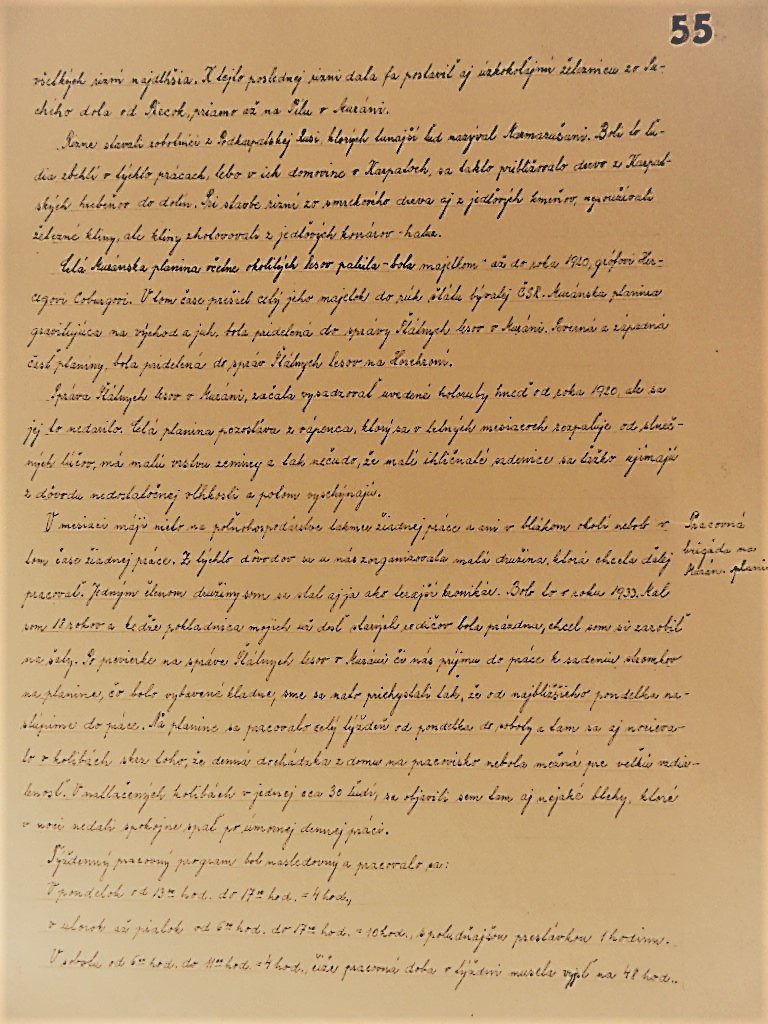 55
všetkých rizní najdlhšia. K tejto poslednej rizni dala fa postaviť aj úzkokoľajnú železnicu zo Su-
chého dola od Piecok, priamo až na Pílu v Muráni.
Rizne stavali robotníci z Podkarpatskej Rusi, ktorých tunajší ľud nazýval Marmarušani. Boli to ľu-
dia zbehlí v týchto prácach, lebo v ich domovine v Karpatoch, sa takto približovalo drevo z Karpat-
ských hrebeňov do dolín. Pri stavbe rizní zo smrekového dreva aj z jedľových kmeňov, nepoužívali
železné kliny, ale kliny zhotovovali z jedľových konárov - halúz.
Celá Muránska planina včetne okolitých lesov patrila - bola majetkom - až do roku 1920, grófovi Her-
cegovi Coburgovi. V tom čase prešiel celý jeho majetok do rúk štátu bývalej ČSR. Muránska planina
gravitujúca na východ a juh, bola pridelená do správy Štátnych lesov v Muráni. Severná a západná
časť planiny, bola pridelená do správ Štátnych lesov na Horehroní.
Správa Štátnych lesov v Muráni, začala vysadzovať uvedené holoruby hneď od roku 1920, ale sa
jej to nedarilo. Celá planina pozostáva z vápenca, ktorý sa v letných mesiacoch rozpaľuje od slneč-
ných lúčov, má malú vrstvu zeminy a tak nečudo, že malé ihličnaté sadenice sa ťažko ujímajú
z dôvodu nedostatočnej vlhkosti a potom vyschýnajú.
V mesiaci máji nieto na poľnohospodárstve takmer žiadnej práce a ani v blízkom okolí nebolo v
tom čase žiadnej práce. Z týchto dôvodov sa u nás zorganizovala malá družina, ktorá chcela ďalej
pracovať. Jedným členom družiny som sa stal aj ja ako terajší kronikár. Bolo to v roku 1933. Mal
som 18 rokov a keďže pokladnica mojich už dosť starých rodičov bola prázdna, chcel som si zarobiť
na šaty. Po previerke na správe Štátnych lesov v Muráni či nás príjmu do práce k sadeniu stromkov
na planine, čo bolo vybavené kladne, sme sa nato prichystali tak, že od najbližšieho pondelka na-
stúpime do práce. Na planine sa pracovalo celý týždeň od pondelka do soboty a tam sa aj nocieva-
lo v kolibách skrz toho, že denná dochádzka z domu na pracovisko nebola možná pre veľkú vzdia-
lenosť. V natlačených kolibách v jednej cca 30 ľudí, sa objavili sem tam aj nejaké blchy, ktoré
v noci nedali spokojne spať po úmornej dennej práci.
Týždenný pracovný program bol nasledovný a pracovalo sa:
V pondelok od 13ºº hod. do 17ºº hod. = 4 hod.,
v utorok až piatok od 6ºº hod. do 17ºº hod. = 10 hod., s poludňajšou prestávkou 1 hodinu.
V sobotu od 6ºº hod. do 11ºº hod. = 4 hod., čiže pracovná doba v týždni musela vyjsť na 48 hod..
Pracovná
brigáda na
Murán. planine